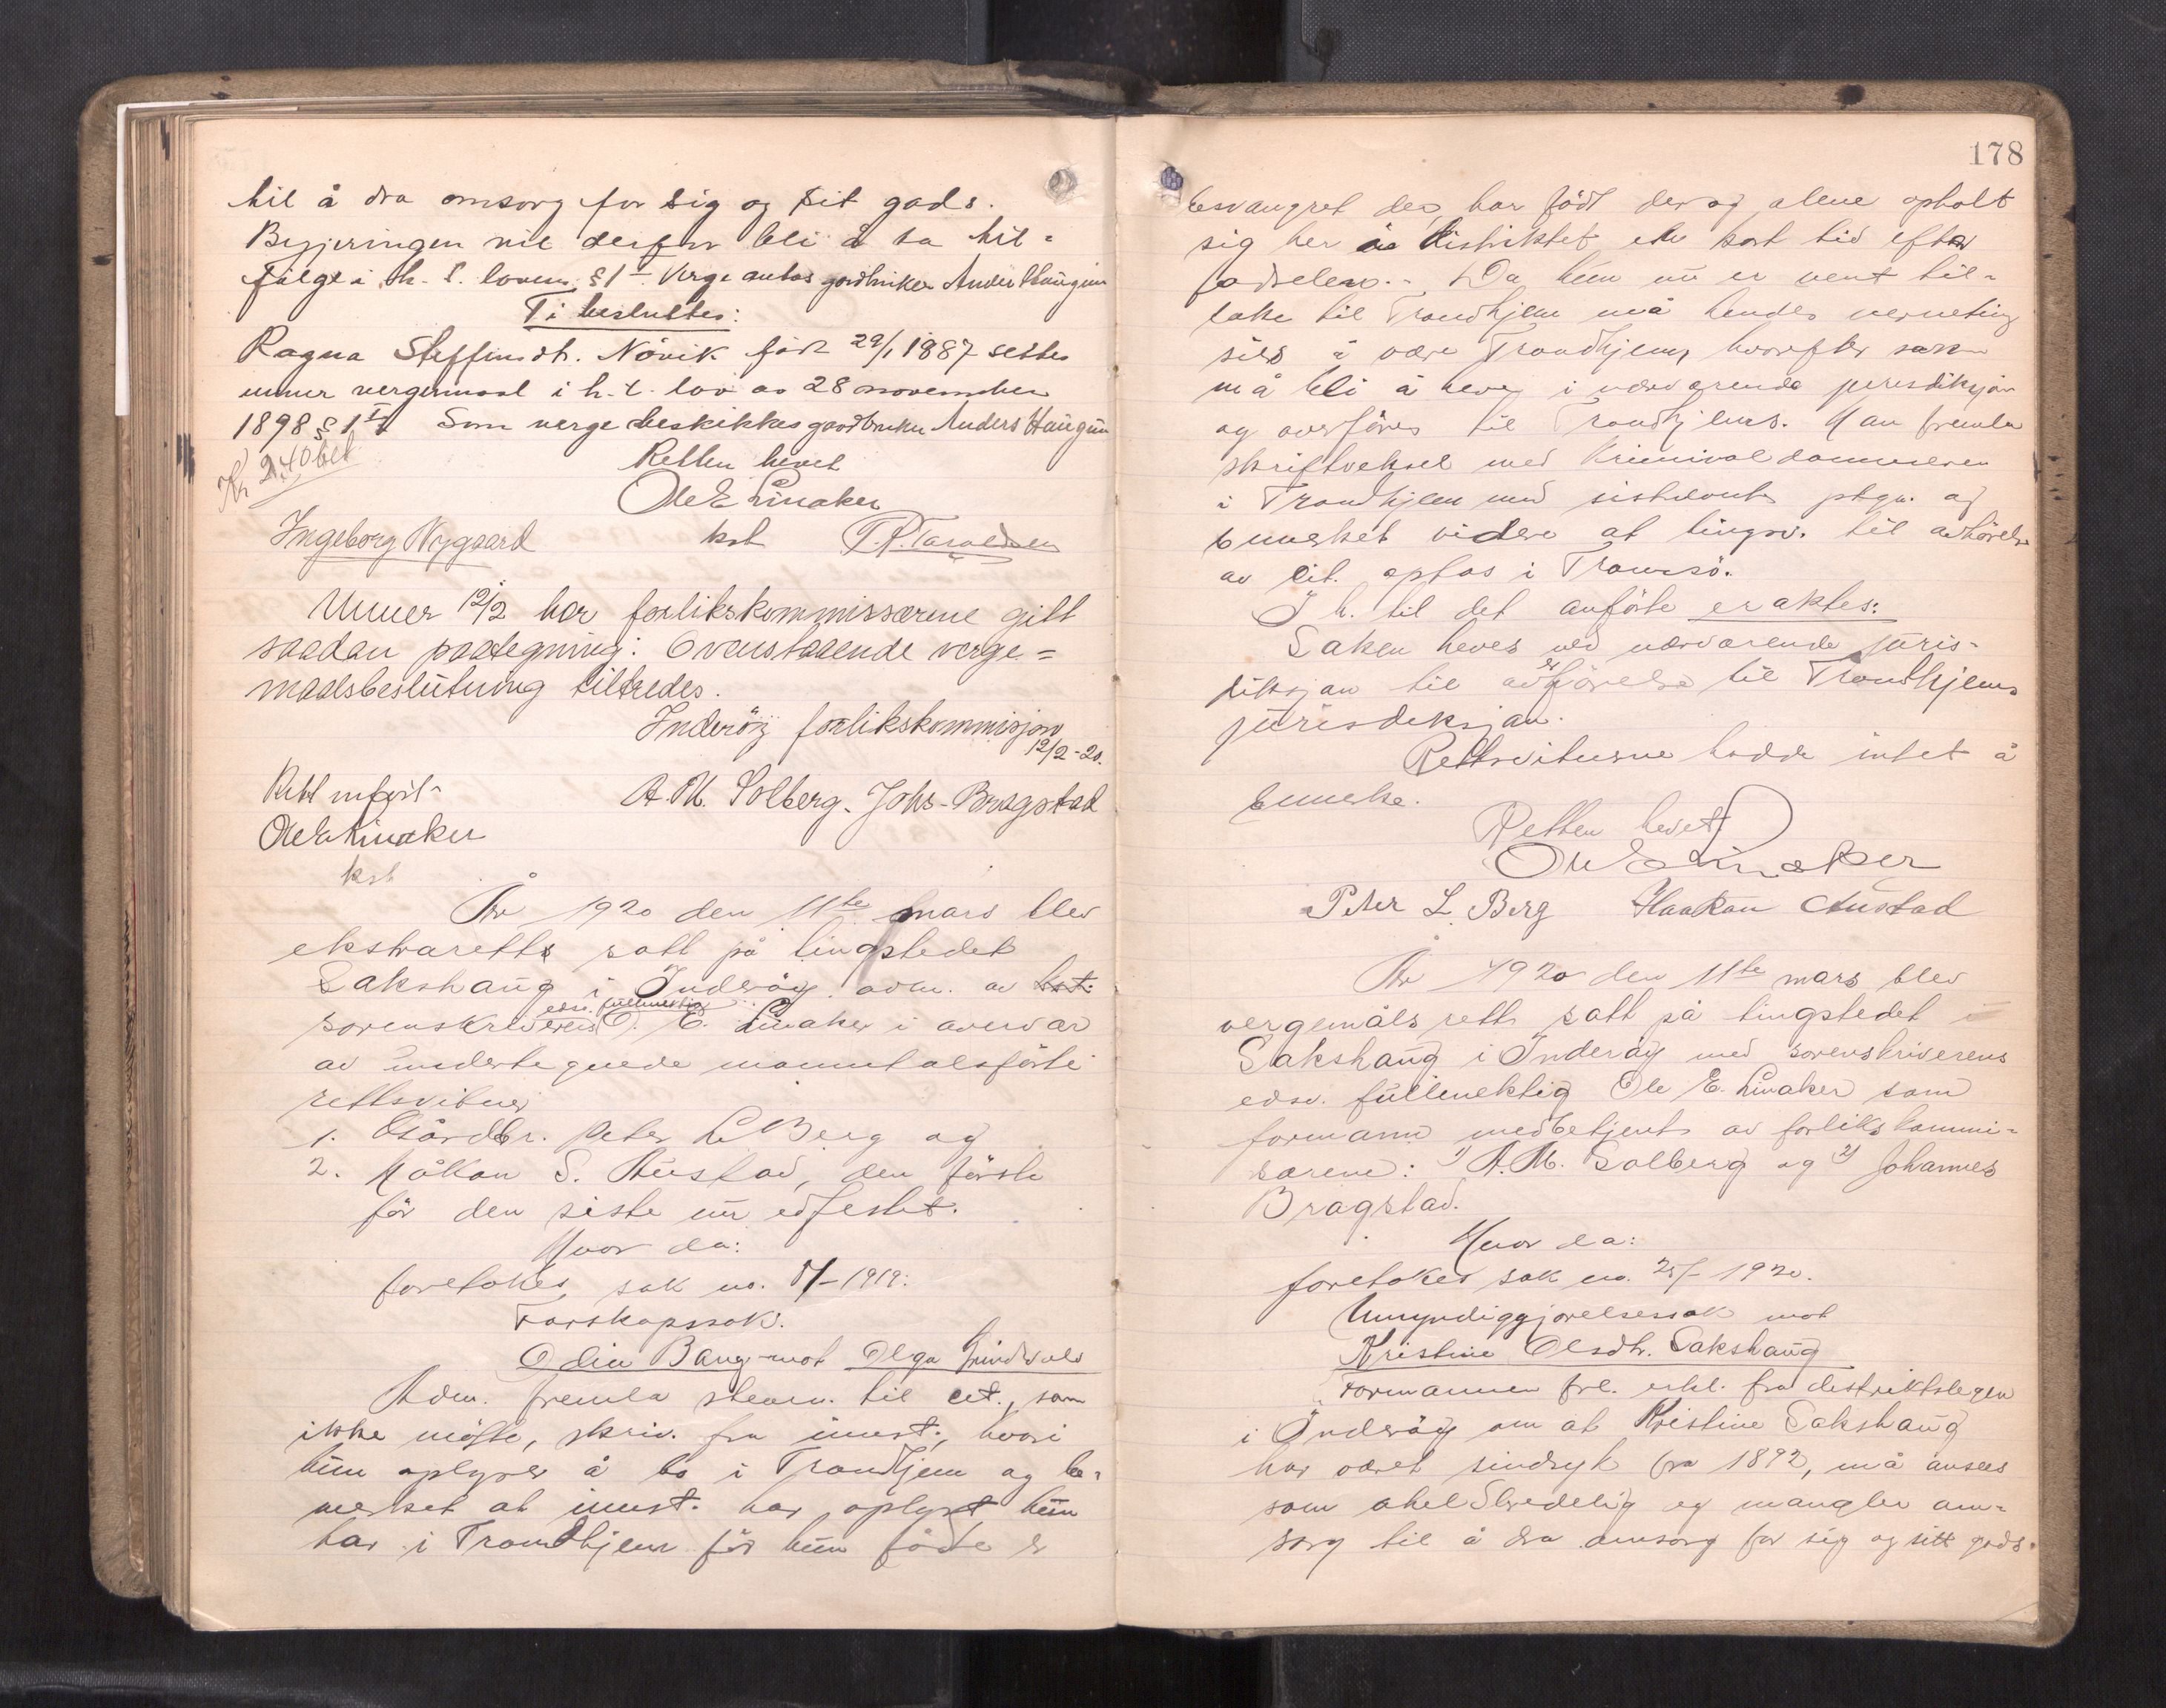 til å dra omsorg for sig og sit gods.
Begjæringen vil derfor bli å ta til=
følge i h. t. lovens § 1 I. Verge antas gardbruker Anders Haugum
Ti besluttes:
Ragna Steffensdt. Növik född 29/1 1887 settes
unner vergemaal i h. t. lov av 28 november
1898 § 1 I. Som verge beskikkes gaardbruker Anders Haugum
Kr 2.40 bet
Retten hevet
Ole E Linaker
Ingeborg Nygaard kst T. P. Taraldsen
Unner 12/2 har forlikskommissærene gitt
saadan paategning: Ovenstaaende verge=
maalsbeslutning tiltredes.
Inderöy forlikskommisjon
12/2-20.
A. M. Solberg. Johs. Bragstad
Rett utført
Ole E Linaker
kst
År 1920 den 11te mars blev
ekstrarett satt på tingstedet
Sakshaug i Inderöy adm. av kst.
edsv. fullmektig
sorenskriverens O. E. Linaker i overvær
av undertegnede manntalsförte
rettsvitner
1. Gårdbr. Peter L Berg og
2. Håkon S. Austad, den förste
för den siste nu edfestet.
Hvor da:
foretokes sak no. 8/-1919:
Farskapssak.
Odin Bang mot Olga Grindvold
Adm. fremla stevn. til cit., som
ikke mötte, skriv. fra innst., hvori
hun oplyses å bo i Trondhjem og be-
merket at innst. har oplyst hun
har i Trondhjem før hun födte er
178
besvangret der, har födt der og alene opholt
sig her i distriktet en kort tid efter
fødselen. Da hun nu er vent til-
bake til Trondhjem må hendes verneting
sies å være Trondhjem, hvorefter saken
må bli å heve i nærværende jurisdiksjon
og overföres til Trondhjems. Han fremla
skriftveksel med Kriminaldommeren
i Trondhjem med sistnevntes ptgn. og
bemerket videre at tingsv. til avhörelse
av cit. optas i Tromsö.
I h. til det anförte eraktes:
Saken heves ved nærværende juris-
diksjon til overförelse til Trondhjems
jurisdiksjon.
Rettsvitnerne hadde intet å
bemerke.
Retten hevet
Ole E Linaker
Peter L. Berg Haakon Austad
År 1920 den 11te mars blev
vergemålsrett satt på tingstedet
Sakshaug i Inderöy med sorenskriverens
edsv. fullmektig Ole E. Linaker som
formann medbetjent av forlikskommi-
særene: 1) A. M. Solberg og 2) Johannes
Bragstad.
Hvor da:
foretokes sak no. 25/- 1920.
Umyndiggjørelsessak mot
Kristine Olsdtr. Sakshaug
Formannen frl. erkl. fra distriktslegen
i Inderöy om at Kristine Sakshaug
har været sindsyk fra 1892, må ansees
som uhelbredelig og mangler om-
sorg til å dra omsorg for sig og sitt gods.